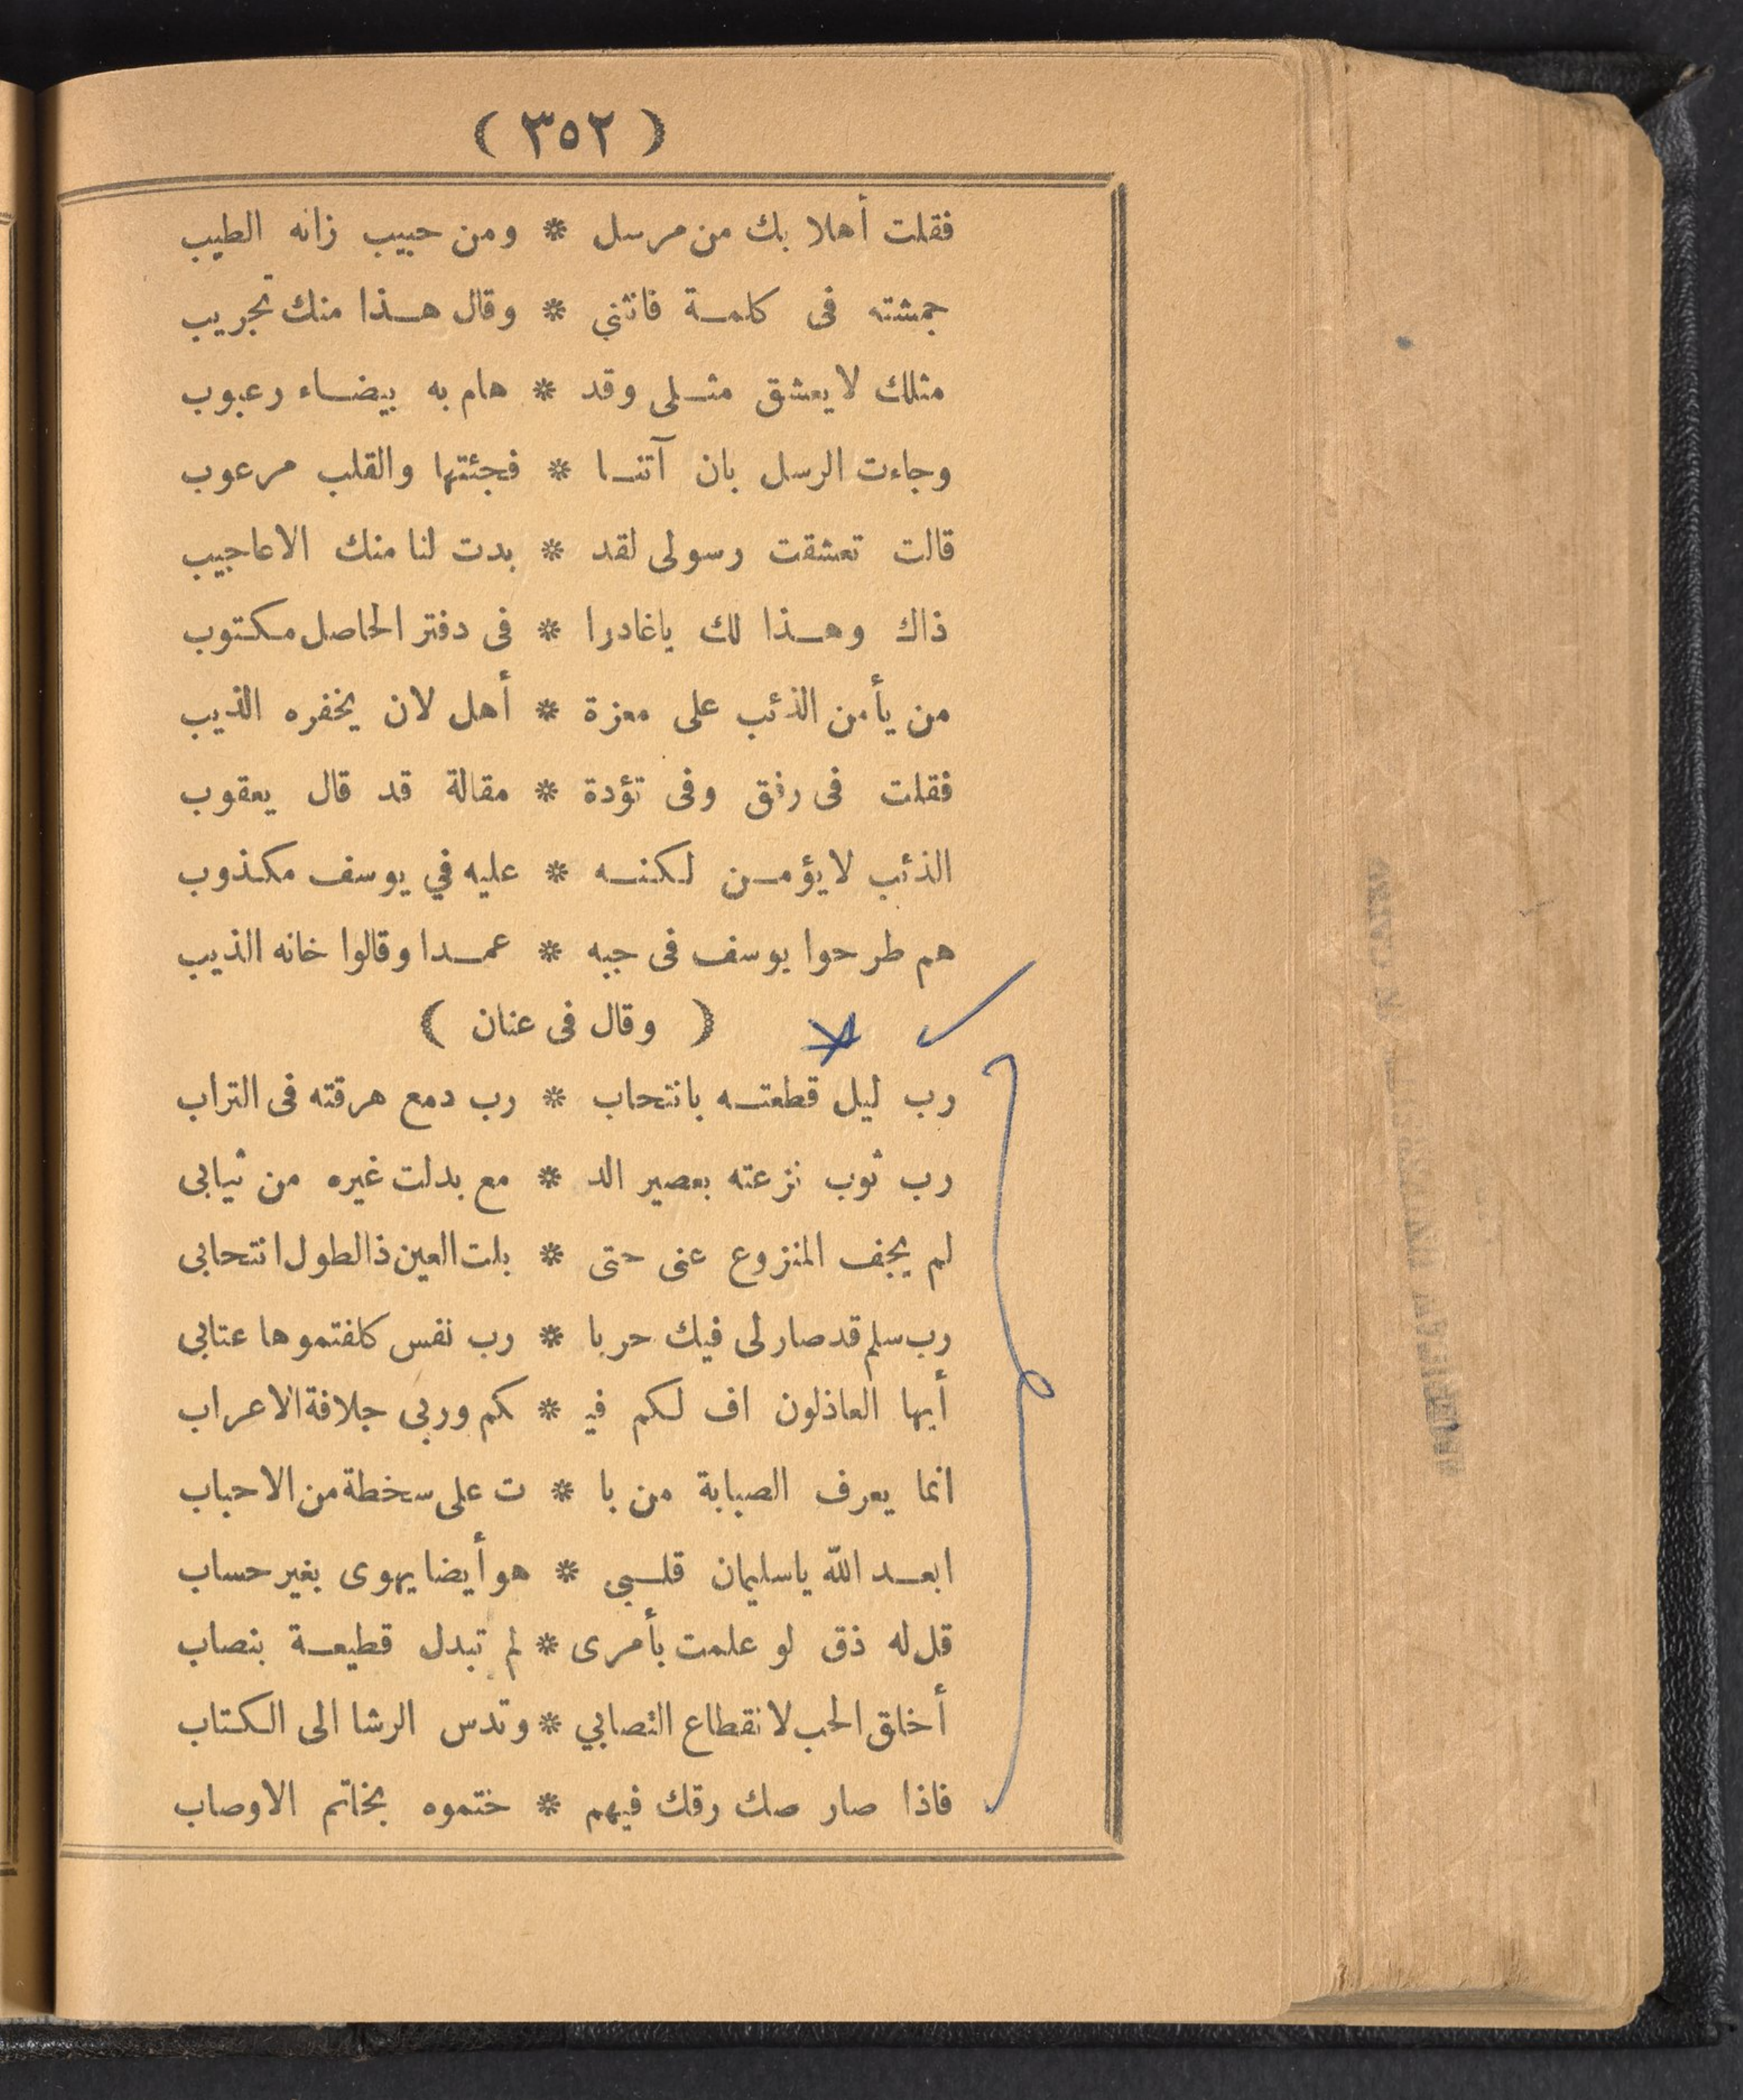 ( ٣٥٢ )
فقلت أهلا بك من مرسل * ومن حبيب زانه الطيب
جمشته فى كلمة فانثني * وقال هذا منك تجريب
مثلك لا يعشق مثلى وقد * هام به بيضاء رعبوب
وجاءت الرسل بان آتنا * فجئتها والقلب مرعوب
قالت تعشقت رسولى لقد * بدت لنا منك الاعاجيب
ذاك وهذا لك ياغادرا * فى دفتر الحاصل مكتوب
من يأمن الذئب على معزة * أهل لان يخفره الذيب
فقلت فى رفق وفى تؤدة * مقالة قد قال يعقوب
الذئب لا يؤمن لكنه * عليه في يوسف مكذوب
هم طرحوا يوسف فى جبه * عمدا وقالوا خانه الذيب
( وقال فى عنان )
رب ليل قطعته بانتحاب * رب دمع هرقته فى التراب
رب ثوب نزعته بعصير الد * مع بدلت غيره من ثيابى
لم يجف المنزوع عنى حتى * بلت العين ذا لطول انتحابى
رب سلم قد صار لى فيك حربا * رب نفس كلفتموها عتابى
أيها العاذلون اف لكم في * كم وربى جلافة الاعراب
انما يعرف الصبابة من با * ت على سخطة من الاحباب
ابعد الله ياسليمان قلبى * هو أيضا يهوى بغير حساب
قل له ذق لو علمت بأمرى * لم تبدل قطيعة بنصاب
أخلق الحب لانقطاع التصابي * وتدس الرشا الى الكتاب
فاذا صار صك رقك فيهم * ختموه بخاتم الاوصاب